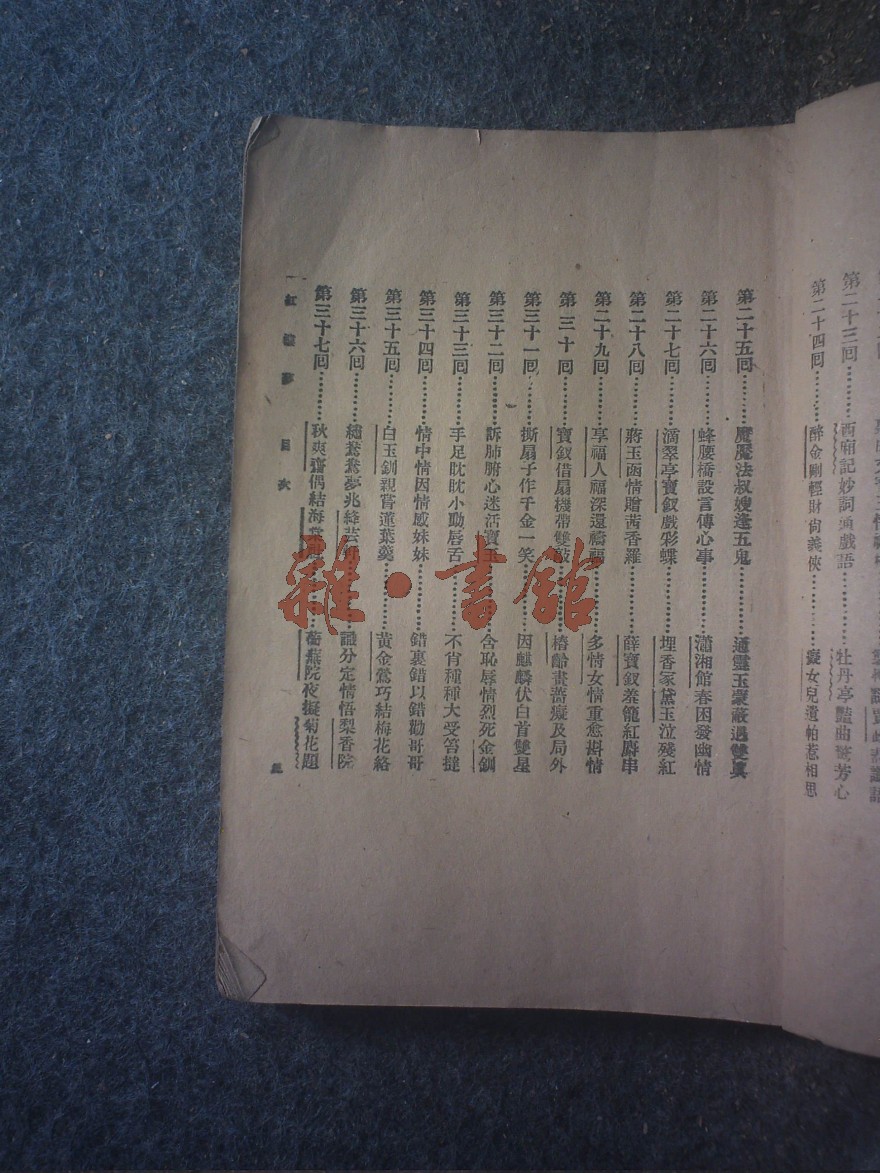 第二十三回………西廂記妙詞通戲語………牡丹亭豔曲驚芳心
第二十四回………醉金剛輕財尚義俠………癡女兒遺帕惹相思
第二十五回………魘魔法叔嫂逢五鬼………通靈玉蒙蔽遇雙真
第二十六回………蜂腰橋設言傳心事………瀟湘館春困發幽情
第二十七回………滴翠亭寶釵戲彩蝶………埋香冢黛玉泣殘紅
第二十八回………蔣玉函情贈茜香羅………薛寶釵羞籠紅麝串
第二十九回………享福人福深還禱福………多情女情重愈斟情
第三十回………寶釵借扇機帶雙敲………椿齡畫薔癡及局外
第三十一回………撕扇子作千金一笑………因麒麟伏白首雙星
第三十二回………訴肺腑心迷活寶玉………含恥辱情烈死金釧
第三十三回………手足眈眈小動唇舌………不肖種種大受笞撻
第三十四回………情中情因情感妹妹………錯裏錯以錯勸哥哥
第三十五回………白玉釧親嘗蓮葉羹………黃金鶯巧結梅花絡
第三十六回………繡鴛鴦夢兆絳芸軒………識分定情悟梨香院
第三十七回………秋爽齋偶結海棠社………蘅蕪院夜擬菊花題
紅樓夢 目次
雜·書館